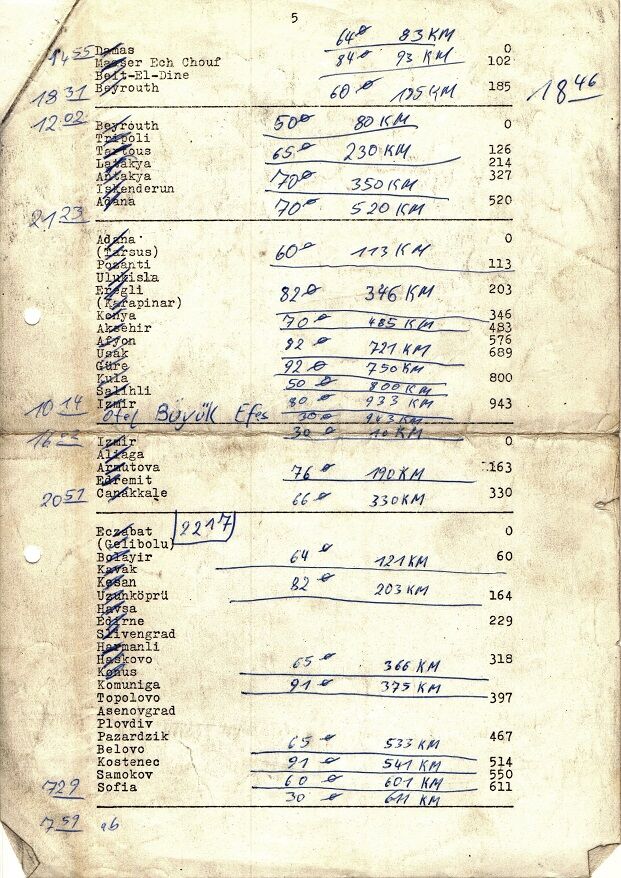 5
64ø 83 KM
14 55 Damas 0
Maaser Ech Chouf 84ø 93 KM 102
Beit-El-Dine
18 31 Beyrouth 60ø 185 KM 185 18 46
12 02
Beyrouth 50ø 80 KM 0
Tripoli
Tartous 65ø 230 KM 126
Latakya 214
Antakya 70ø 350 KM 327
Iskenderun
Adana 70ø 520 KM 520
21 23
Adana 0
(Tarsus) 60ø 113 KM
Pozanti 113
Ulukisla
Eregli 82ø 346 KM 203
(Karapinar)
Konya 346
Aksehir 70ø 485 KM 483
Afyon 82ø 721 KM 576
Usak 689
Güre 92ø 750 KM
Kula 50ø 800 KM 800
Salihli
Izmir 80ø 933 KM 943
10 14 Otel Büyük Efes 30ø 943 KM
Izmir 30ø 10 KM 0
Aliaga
Armutova 76ø 190 KM 163
Edremit
20 51 Canakkale 66ø 330 KM 330
Eczabat 2217 0
(Gelibolu)
Bolayir 64ø 121 KM 60
Kavak
Kesan 82ø 203 KM
Uzunköprü 164
Havsa
Edirne 229
Slivengrad
Harmanli
Haskovo 65ø 366 KM 318
Konus
Komuniga 91ø 375 KM
Topolovo 397
Asenovgrad
Plovdiv
Pazardzik 65ø 533 KM 467
Belovo
Kostenec 91ø 541 KM 514
Samokov 550
7 29 Sofia 60ø 601 KM 611
30ø 611 KM
7 59 ab